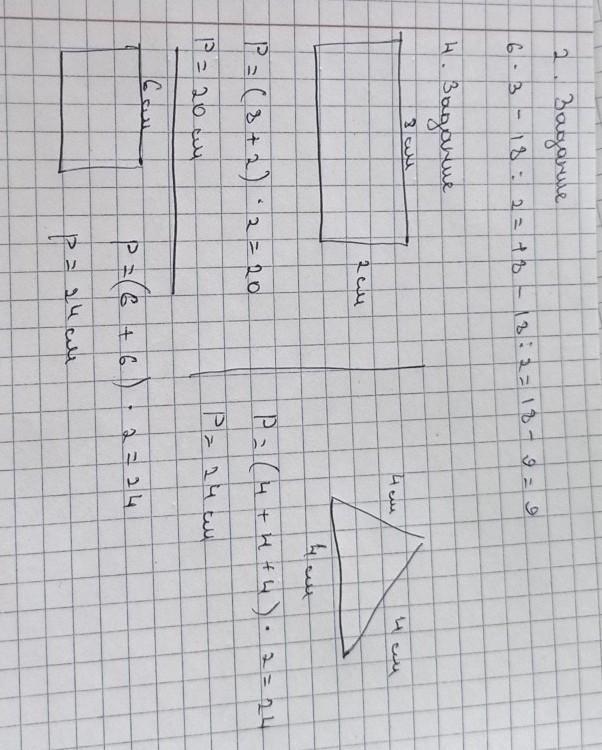 2. Задание
6 · 3 - 18 : 2 = 18 - 18 : 2 = 18 - 9 = 9
4. Задание
8 см
2 см
P = (8 + 2) · 2 = 20
P = 20 см
4 см
4 см
4 см
P = (4 + 4 + 4) · 2 = 24
P = 24 см
6 см
P = (6 + 6) · 2 = 24
P = 24 см